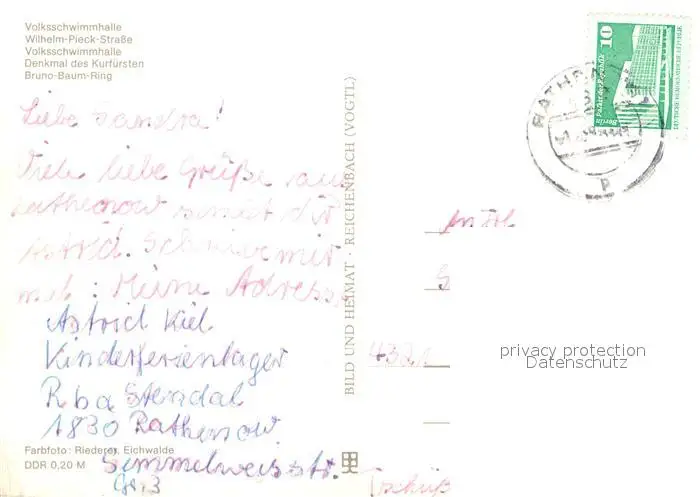 Volksschwimmhalle
Wilhelm-Pieck-Straße
Volksschwimmhalle
Denkmal des Kurfürsten
Bruno-Baum-Ring
Liebe Sandra!
Viele liebe Grüße aus
Rathenow sendet dir
Astrid. Schreibe mir
mal: Meine Adresse
Astrid Kiel
Kinderferienlager
Rba Stendal
1830 Rathenow
Semmelweisstr.
Gr. 3
Tschüß
Farbfoto: Riederer, Eichwalde
DDR 0,20 M
BILD UND HEIMAT · REICHENBACH (VOGTL)
10
Berlin Palast der Republik
DEUTSCHE DEMOKRATISCHE REPUBLIK
RATHENOW
An Frl
S
4321
privacy protection
Datenschutz